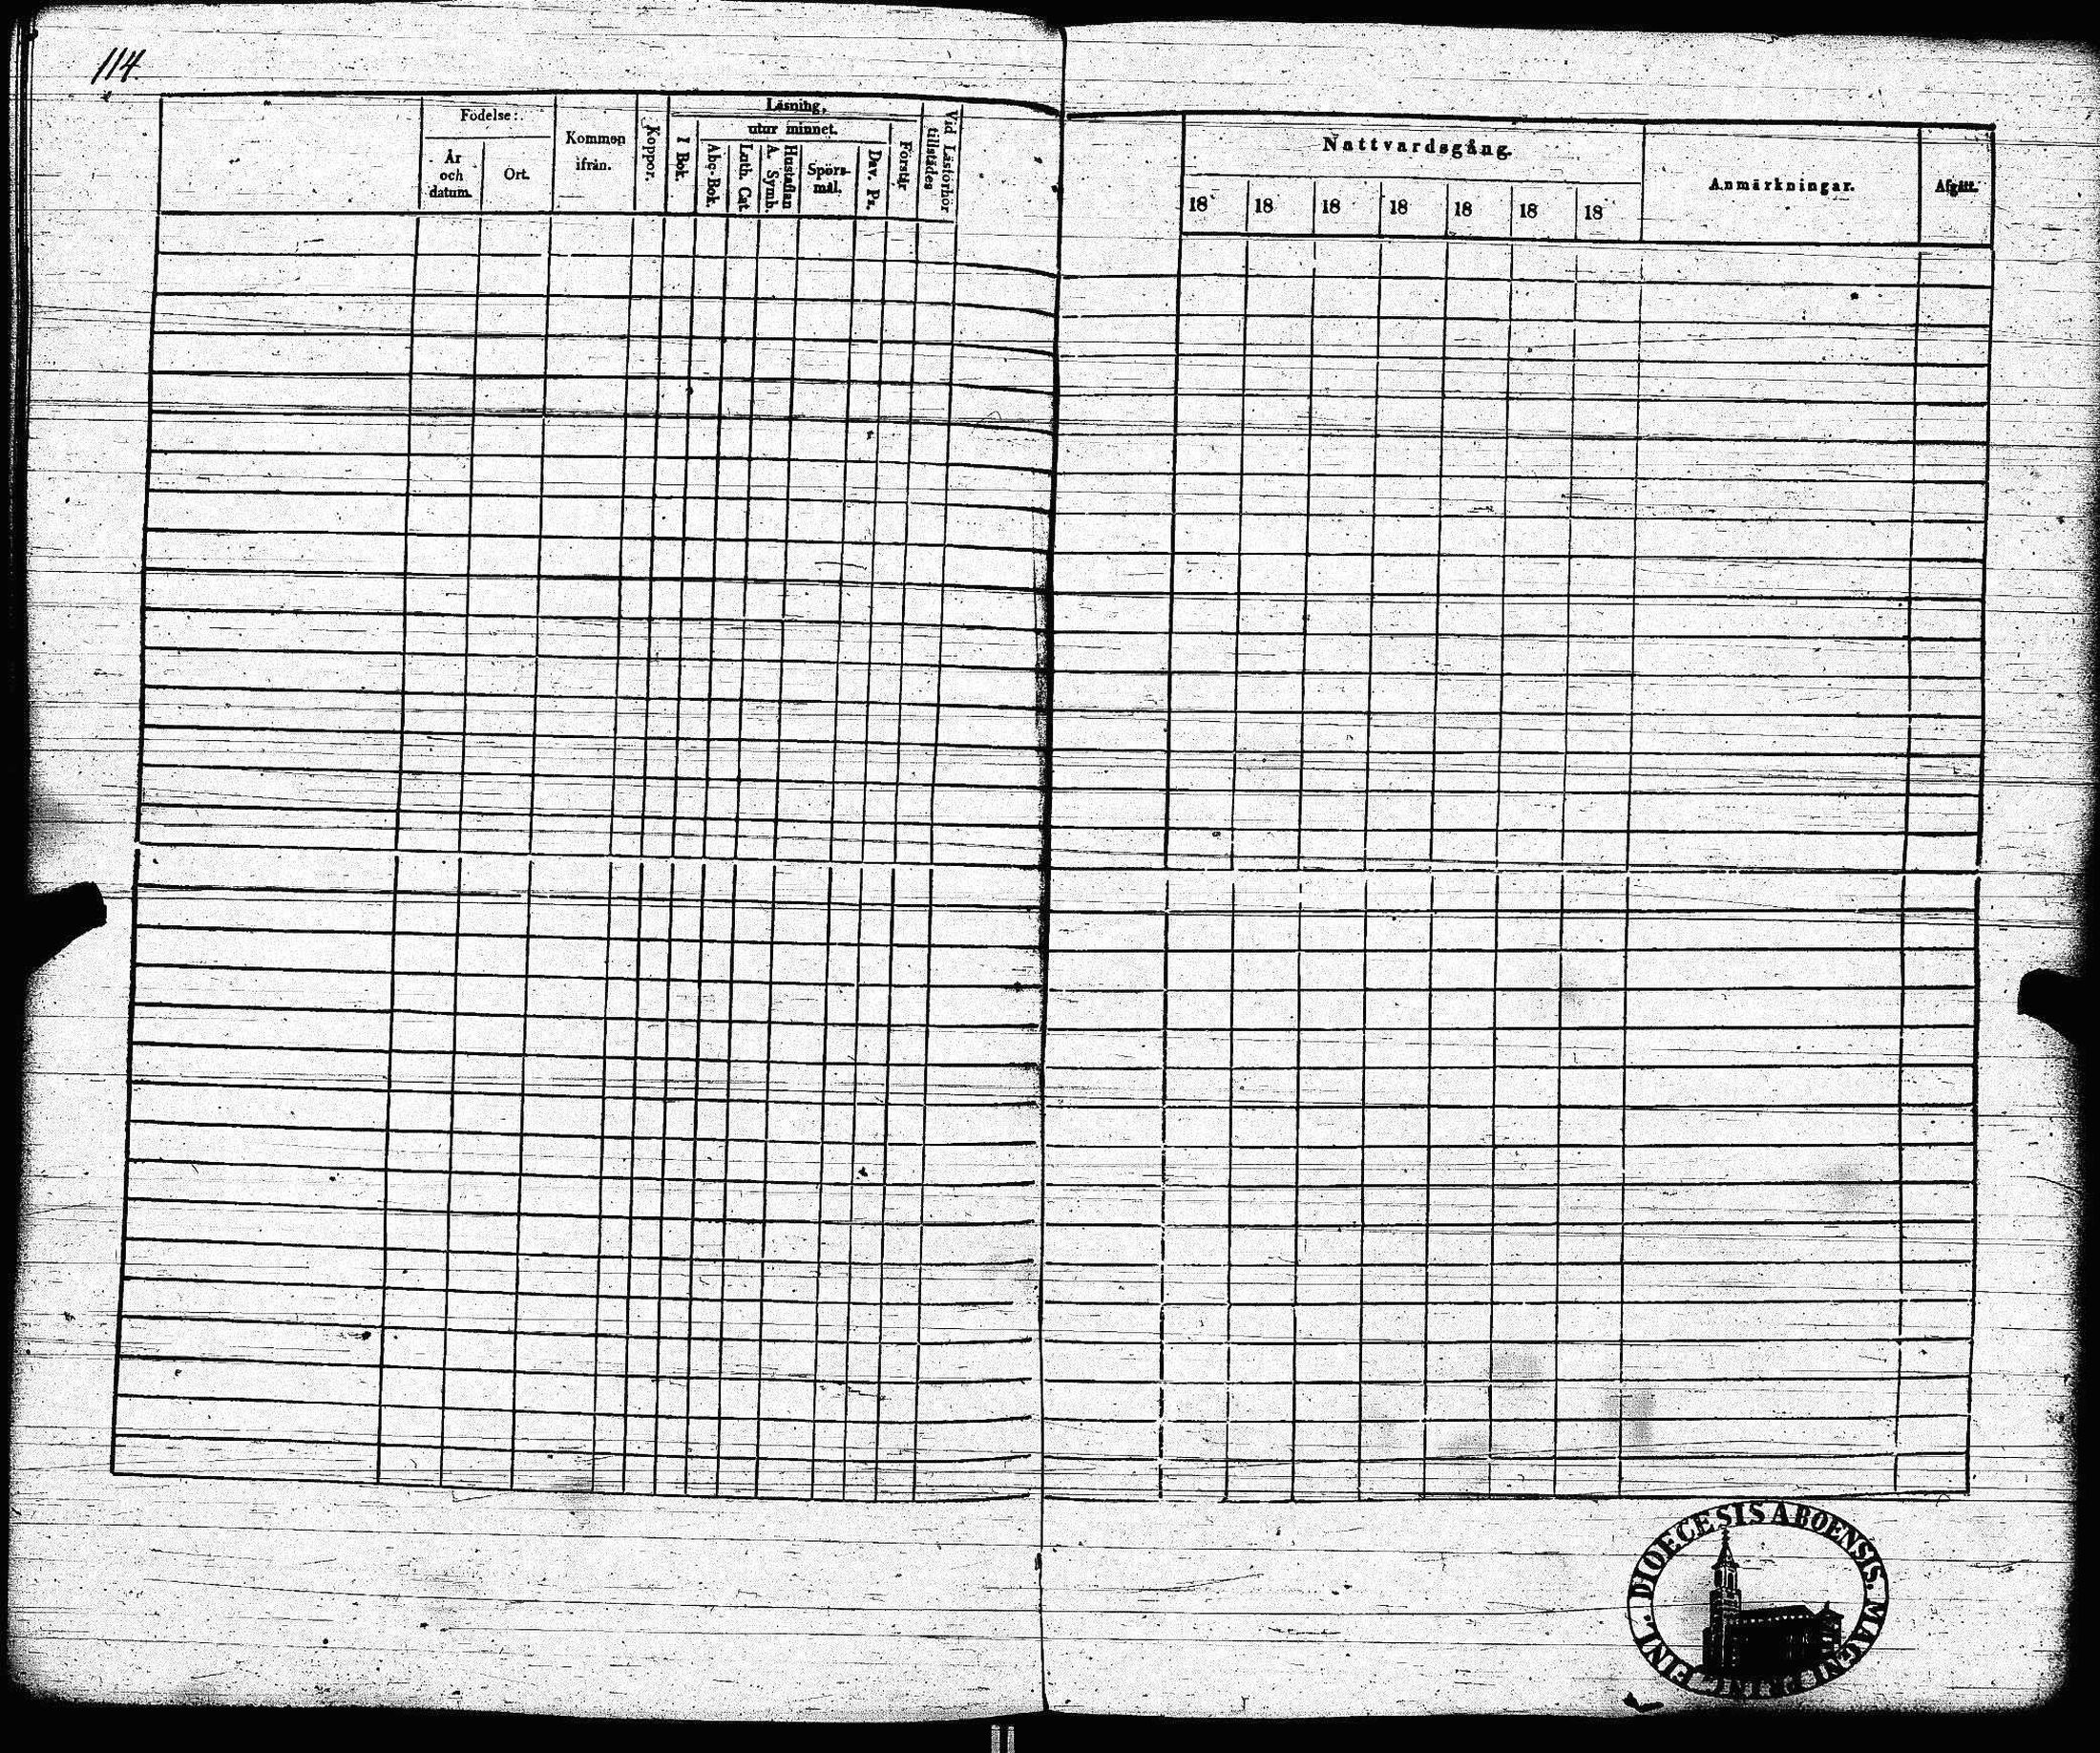 114
Födelse:
År
och
datum.
Ort.
Kommen
ifrån.
Koppor.
Läsning,
I Bok.
utur minnet.
Abc-Bok.
Luth. Cat.
A. Symb.
Hustaflan
Spörs-
mål.
Dav. Ps.
Förstår
Vid Läsförhör
tillstädes
Nattvardsgång.
18 18 18 18 18 18 18
Anmärkningar.
Afgått.
DIOECESIS ABOENSIS. MAGNI PRINC. FINL.